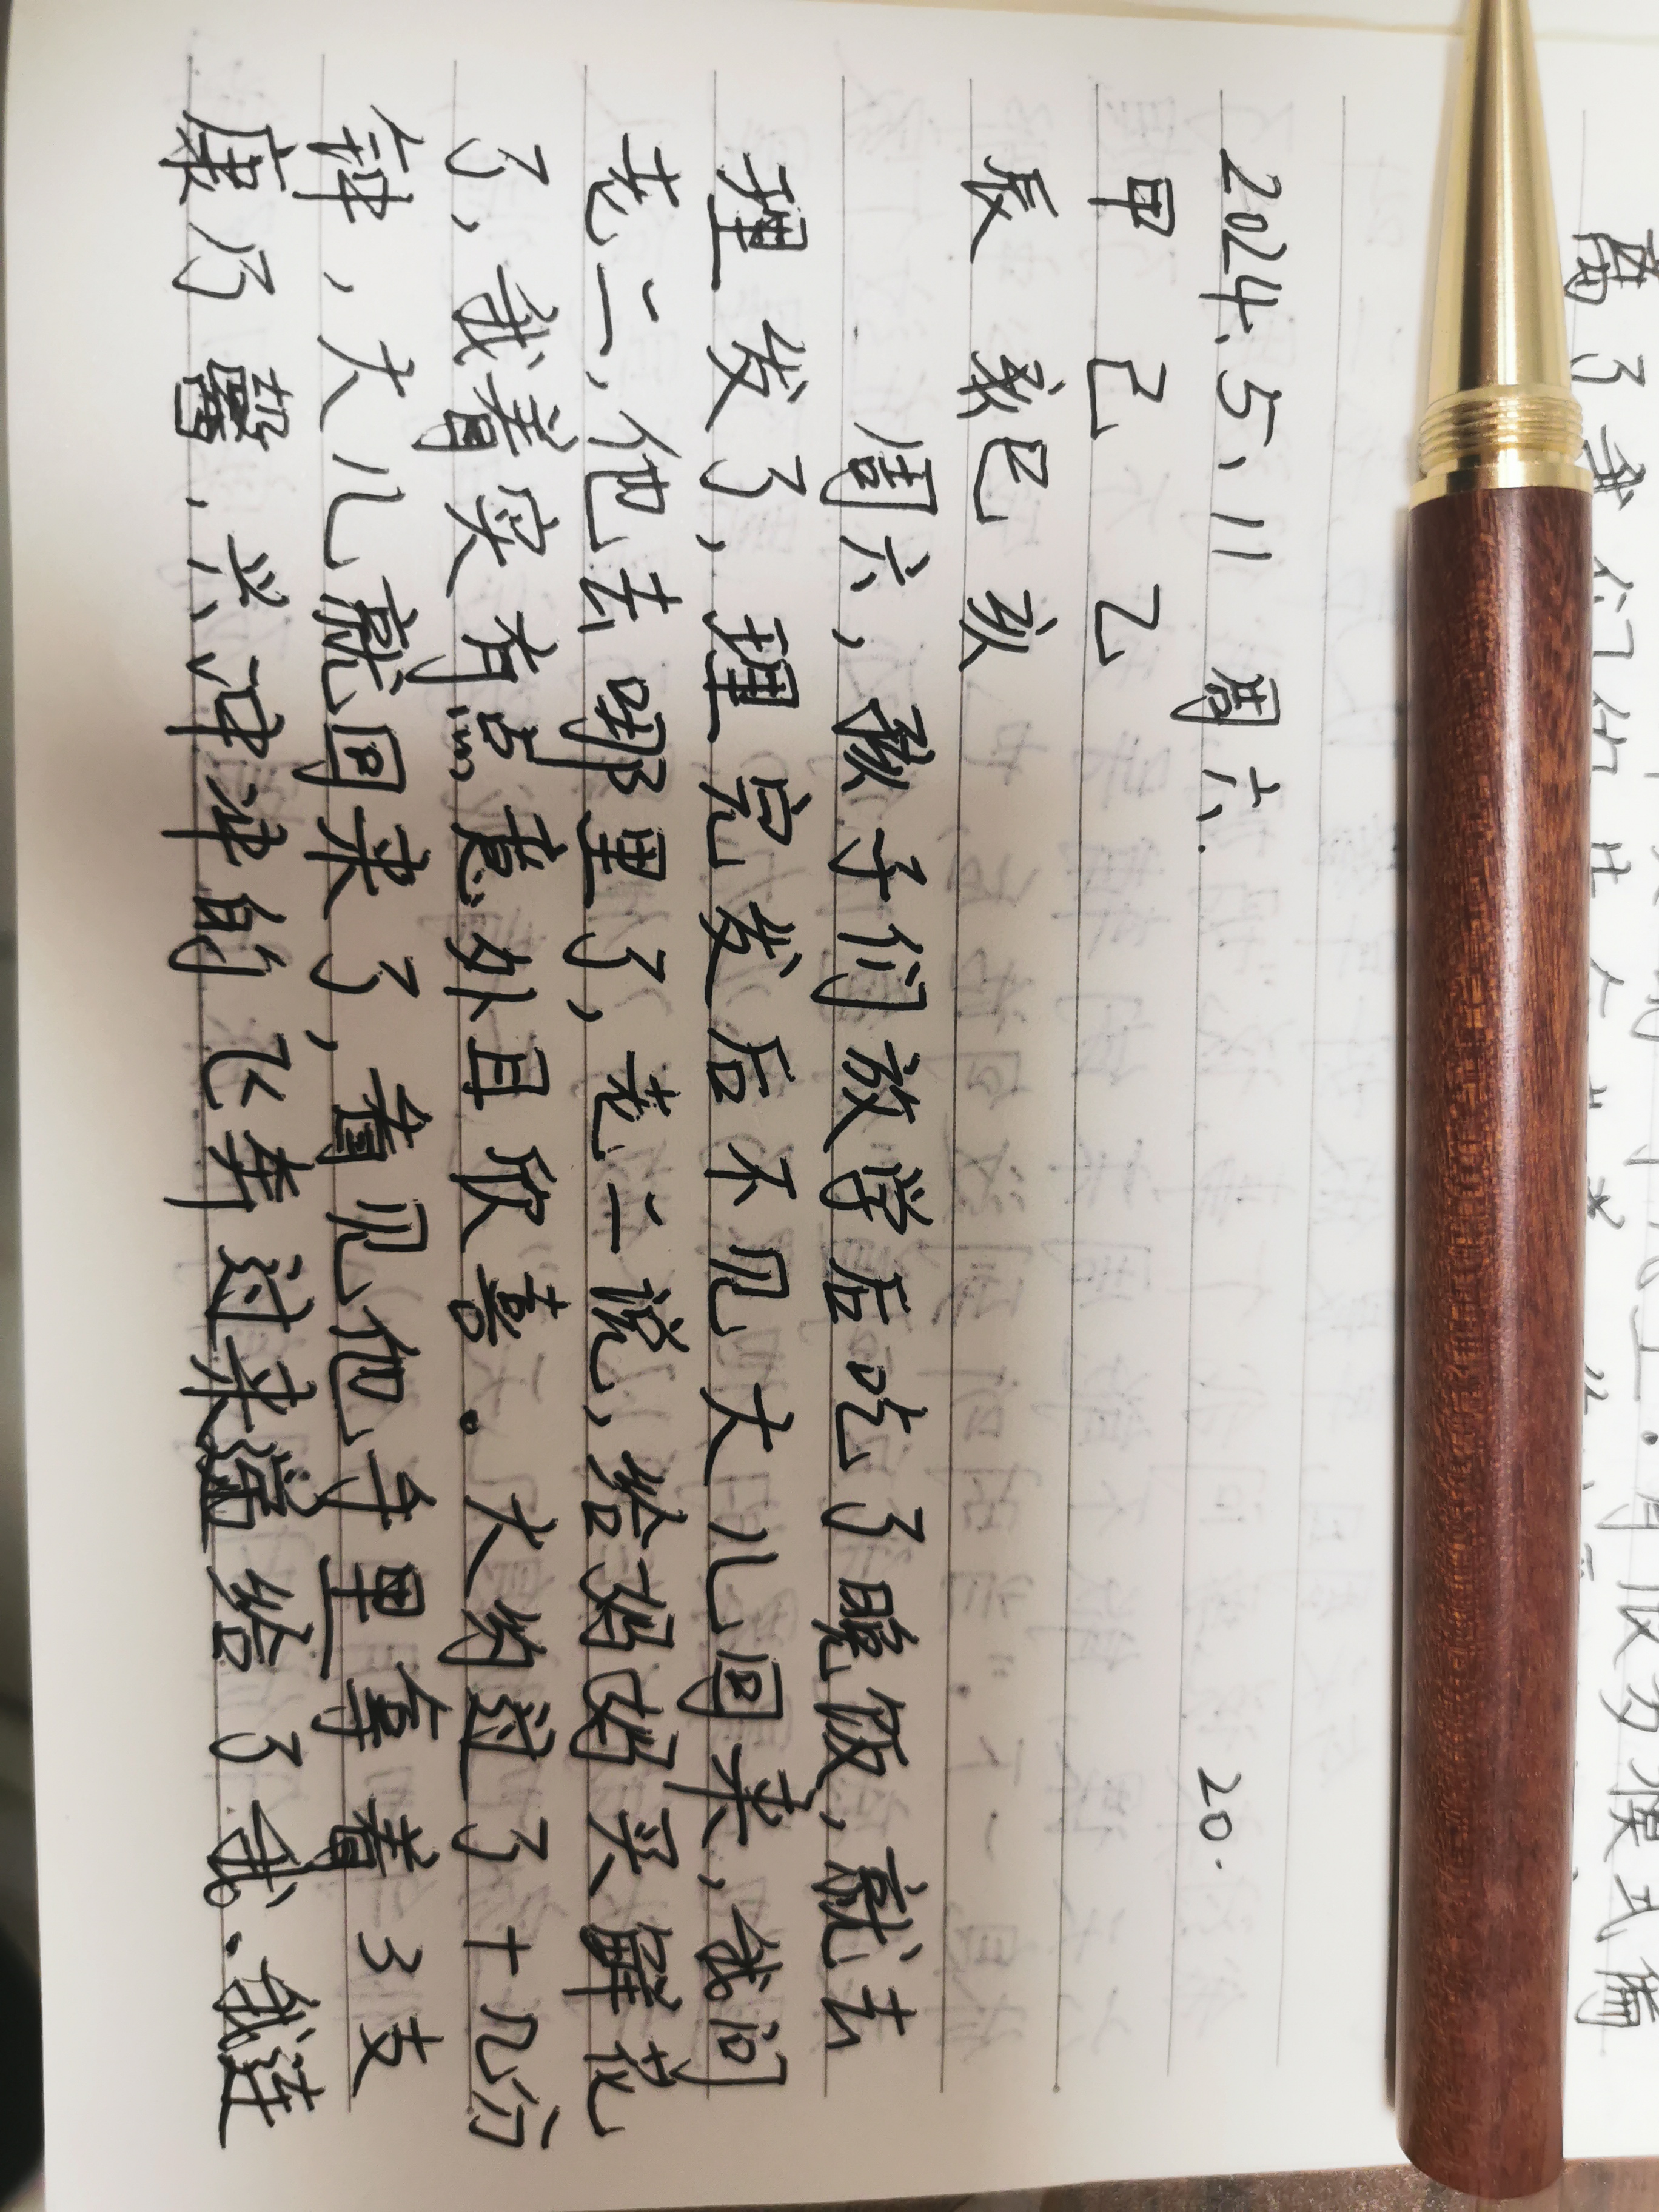 2024.5.11 周六. 20.
甲 己 乙
辰 巳 亥
周六, 孩子们放学后吃了晚饭, 就去
理发了, 理完发后不见大儿回来, 我问
老二, 他去哪里了, 老二说, 给妈妈买鲜花
了, 我着实有点意外且欣喜。大约过了十几分
钟, 大儿就回来了, 看见他手里拿着3支
康乃馨, 兴冲冲的飞奔过来递给了我. 我连